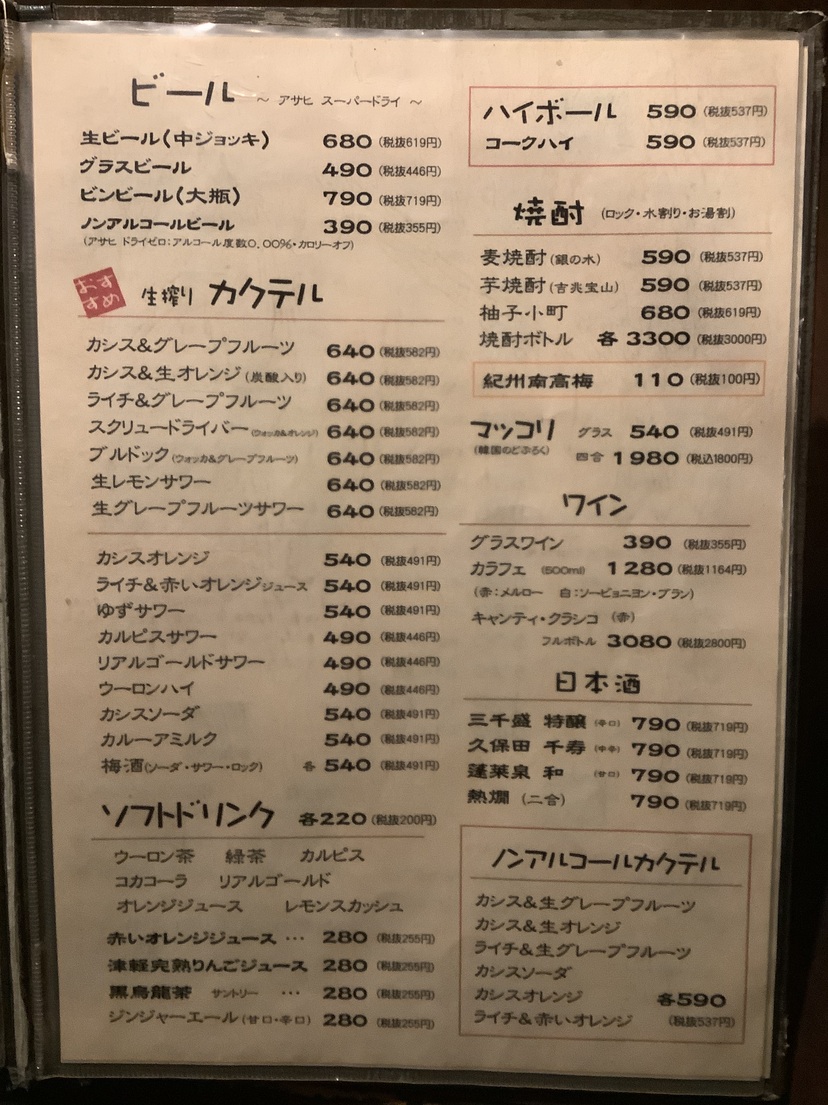 ビール ～ アサヒ スーパードライ ～
生ビール(中ジョッキ) 680 (税抜619円)
グラスビール 490 (税抜446円)
ビンビール(大瓶) 790 (税抜719円)
ノンアルコールビール 390 (税抜355円)
(アサヒ ドライゼロ:アルコール度数0.00%・カロリーオフ)
おすすめ 生搾り カクテル
カシス&グレープフルーツ 640 (税抜582円)
カシス&生オレンジ(炭酸入り) 640 (税抜582円)
ライチ&グレープフルーツ 640 (税抜582円)
スクリュードライバー(ウォッカ&オレンジ) 640 (税抜582円)
ブルドック(ウォッカ&グレープフルーツ) 640 (税抜582円)
生レモンサワー 640 (税抜582円)
生グレープフルーツサワー 640 (税抜582円)
カシスオレンジ 540 (税抜491円)
ライチ&赤いオレンジジュース 540 (税抜491円)
ゆずサワー 540 (税抜491円)
カルピスサワー 490 (税抜446円)
リアルゴールドサワー 490 (税抜446円)
ウーロンハイ 490 (税抜446円)
カシスソーダ 540 (税抜491円)
カルーアミルク 540 (税抜491円)
梅酒(ソーダ・サワー・ロック) 各 540 (税抜491円)
ソフトドリンク 各220 (税抜200円)
ウーロン茶 緑茶 カルピス
コカコーラ リアルゴールド
オレンジジュース レモンスカッシュ
赤いオレンジジュース … 280 (税抜255円)
津軽完熟りんごジュース 280 (税抜255円)
黒烏龍茶 サントリー … 280 (税抜255円)
ジンジャーエール(甘口・辛口) 280 (税抜255円)
ハイボール 590 (税抜537円)
コークハイ 590 (税抜537円)
焼酎 (ロック・水割り・お湯割)
麦焼酎(銀の水) 590 (税抜537円)
芋焼酎(吉兆宝山) 590 (税抜537円)
柚子小町 680 (税抜619円)
焼酎ボトル 各 3300 (税抜3000円)
紀州南高梅 110 (税抜100円)
マッコリ グラス 540 (税抜491円)
(韓国のどぶろく) 四合 1980 (税込1800円)
ワイン
グラスワイン 390 (税抜355円)
カラフェ (500ml) 1280 (税抜1164円)
(赤:メルロー 白:ソービョニヨン・ブラン)
キャンティ・クラシコ (赤)
フルボトル 3080 (税抜2800円)
日本酒
三千盛 特醸 (辛口) 790 (税抜719円)
久保田 千寿 (中辛) 790 (税抜719円)
蓬莱泉 和 (甘口) 790 (税抜719円)
熱燗 (二合) 790 (税抜719円)
ノンアルコールカクテル
カシス&生グレープフルーツ
カシス&生オレンジ
ライチ&生グレープフルーツ
カシスソーダ
カシスオレンジ 各590
ライチ&赤いオレンジ (税抜537円)